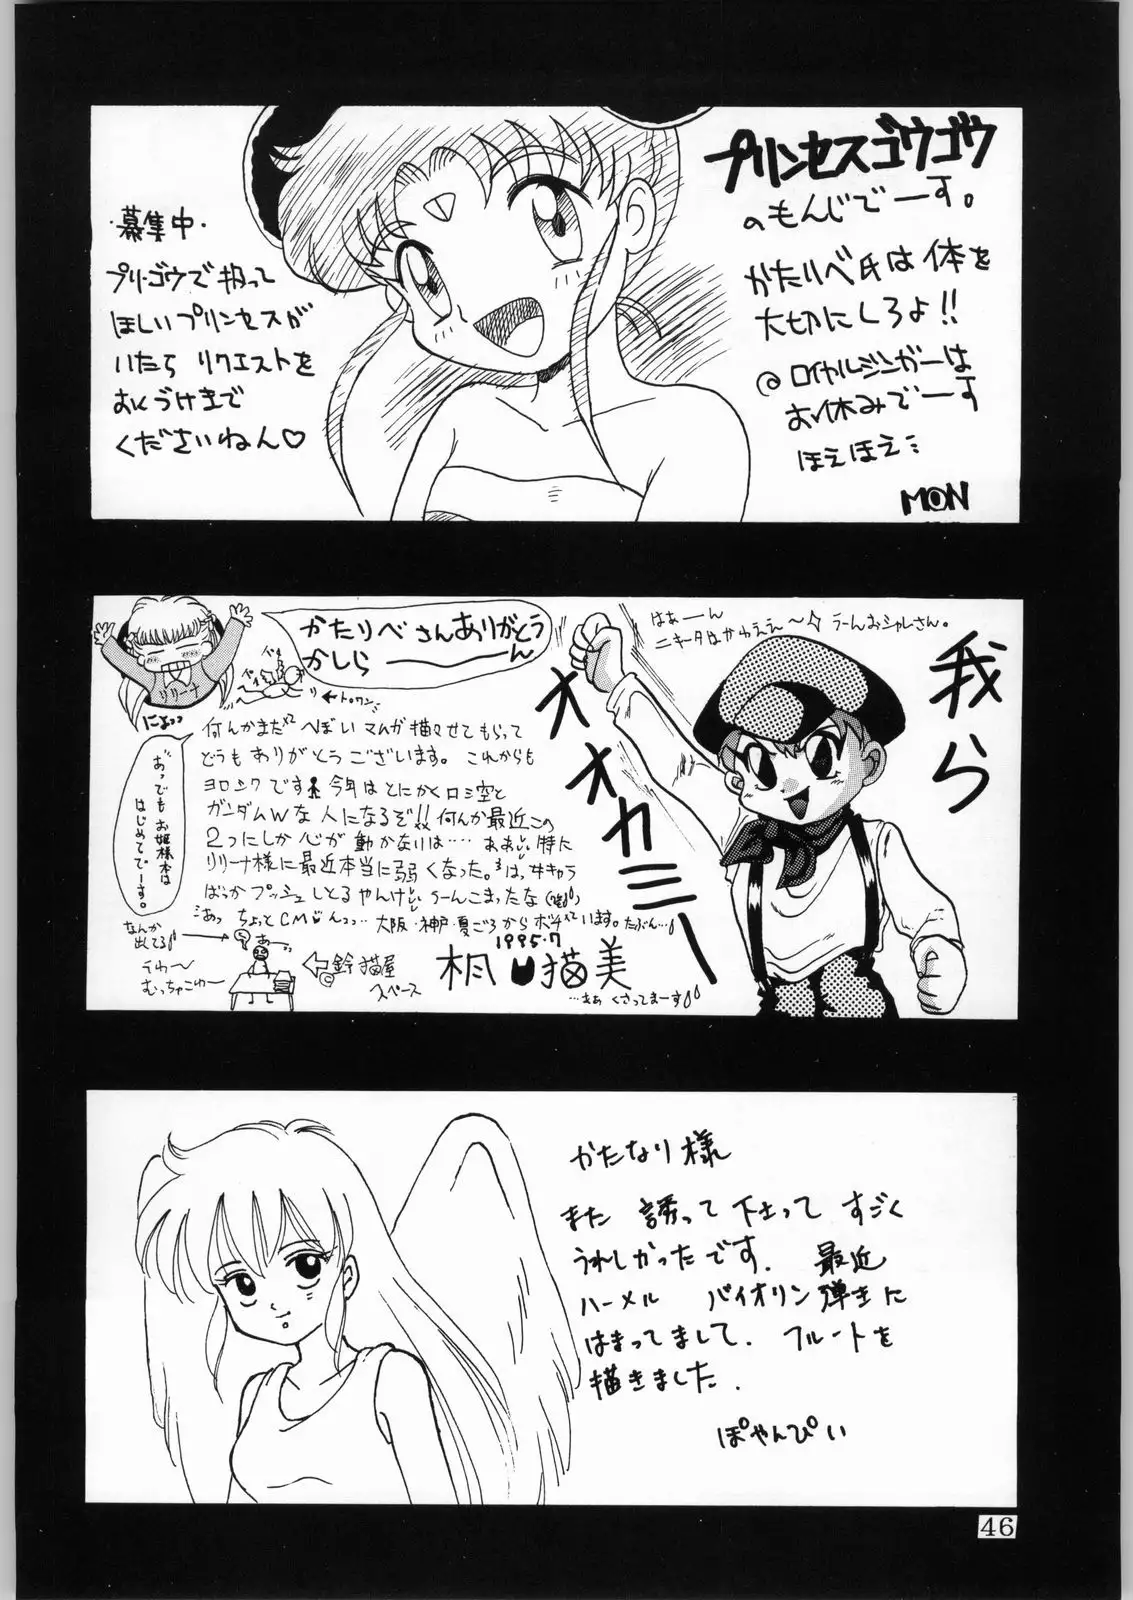 プリンセスゴウゴウ
のもんじでーす。
かたりべ氏は体を
大切にしろよ!!
@ロイヤルジンガーは
お休みでーす
ほえほえ…
MON
・募集中・
プリ・ゴウで扱って
ほしいプリンセスが
いたら リクエストを
おくづけまで
くださいねん♡
はぁーん
ニキータはかわええ〜 うーんおシャレさん。
我ら
オオカミー
かたりべさんありがとう
かしら────ん
リリーナ
にょっっ
←トロワン
おっでもお姫様本は
はじめてでーす。
何んかまた へぼいマンガ描かせてもらって
どうもありがとうございます。これからも
ヨロシクです 今年はとにかくロミ空と
ガンダムWな人になるぞ!!何んか最近この
2つにしか心が動かなりは… ああ 特に
リリーナ様に最近本当に弱くなった。
ばっかプッシュしとるやんけ うーんこまったな
あっ ちょっとCM んっっ… 大阪・神戸・夏ごろからボチ います。たぶん…
1995.7
なんか
出てる
うわ〜
むっちゃこわ〜
あぁ
鈴猫屋
スペース
猫美
…さぁ くさってまーす
かたなり様
また 誘って下さって すごく
うれしかったです. 最近
ハーメル バイオリン弾きに
はまってまして. フルートを
描きました.
ぽやんぴい
46